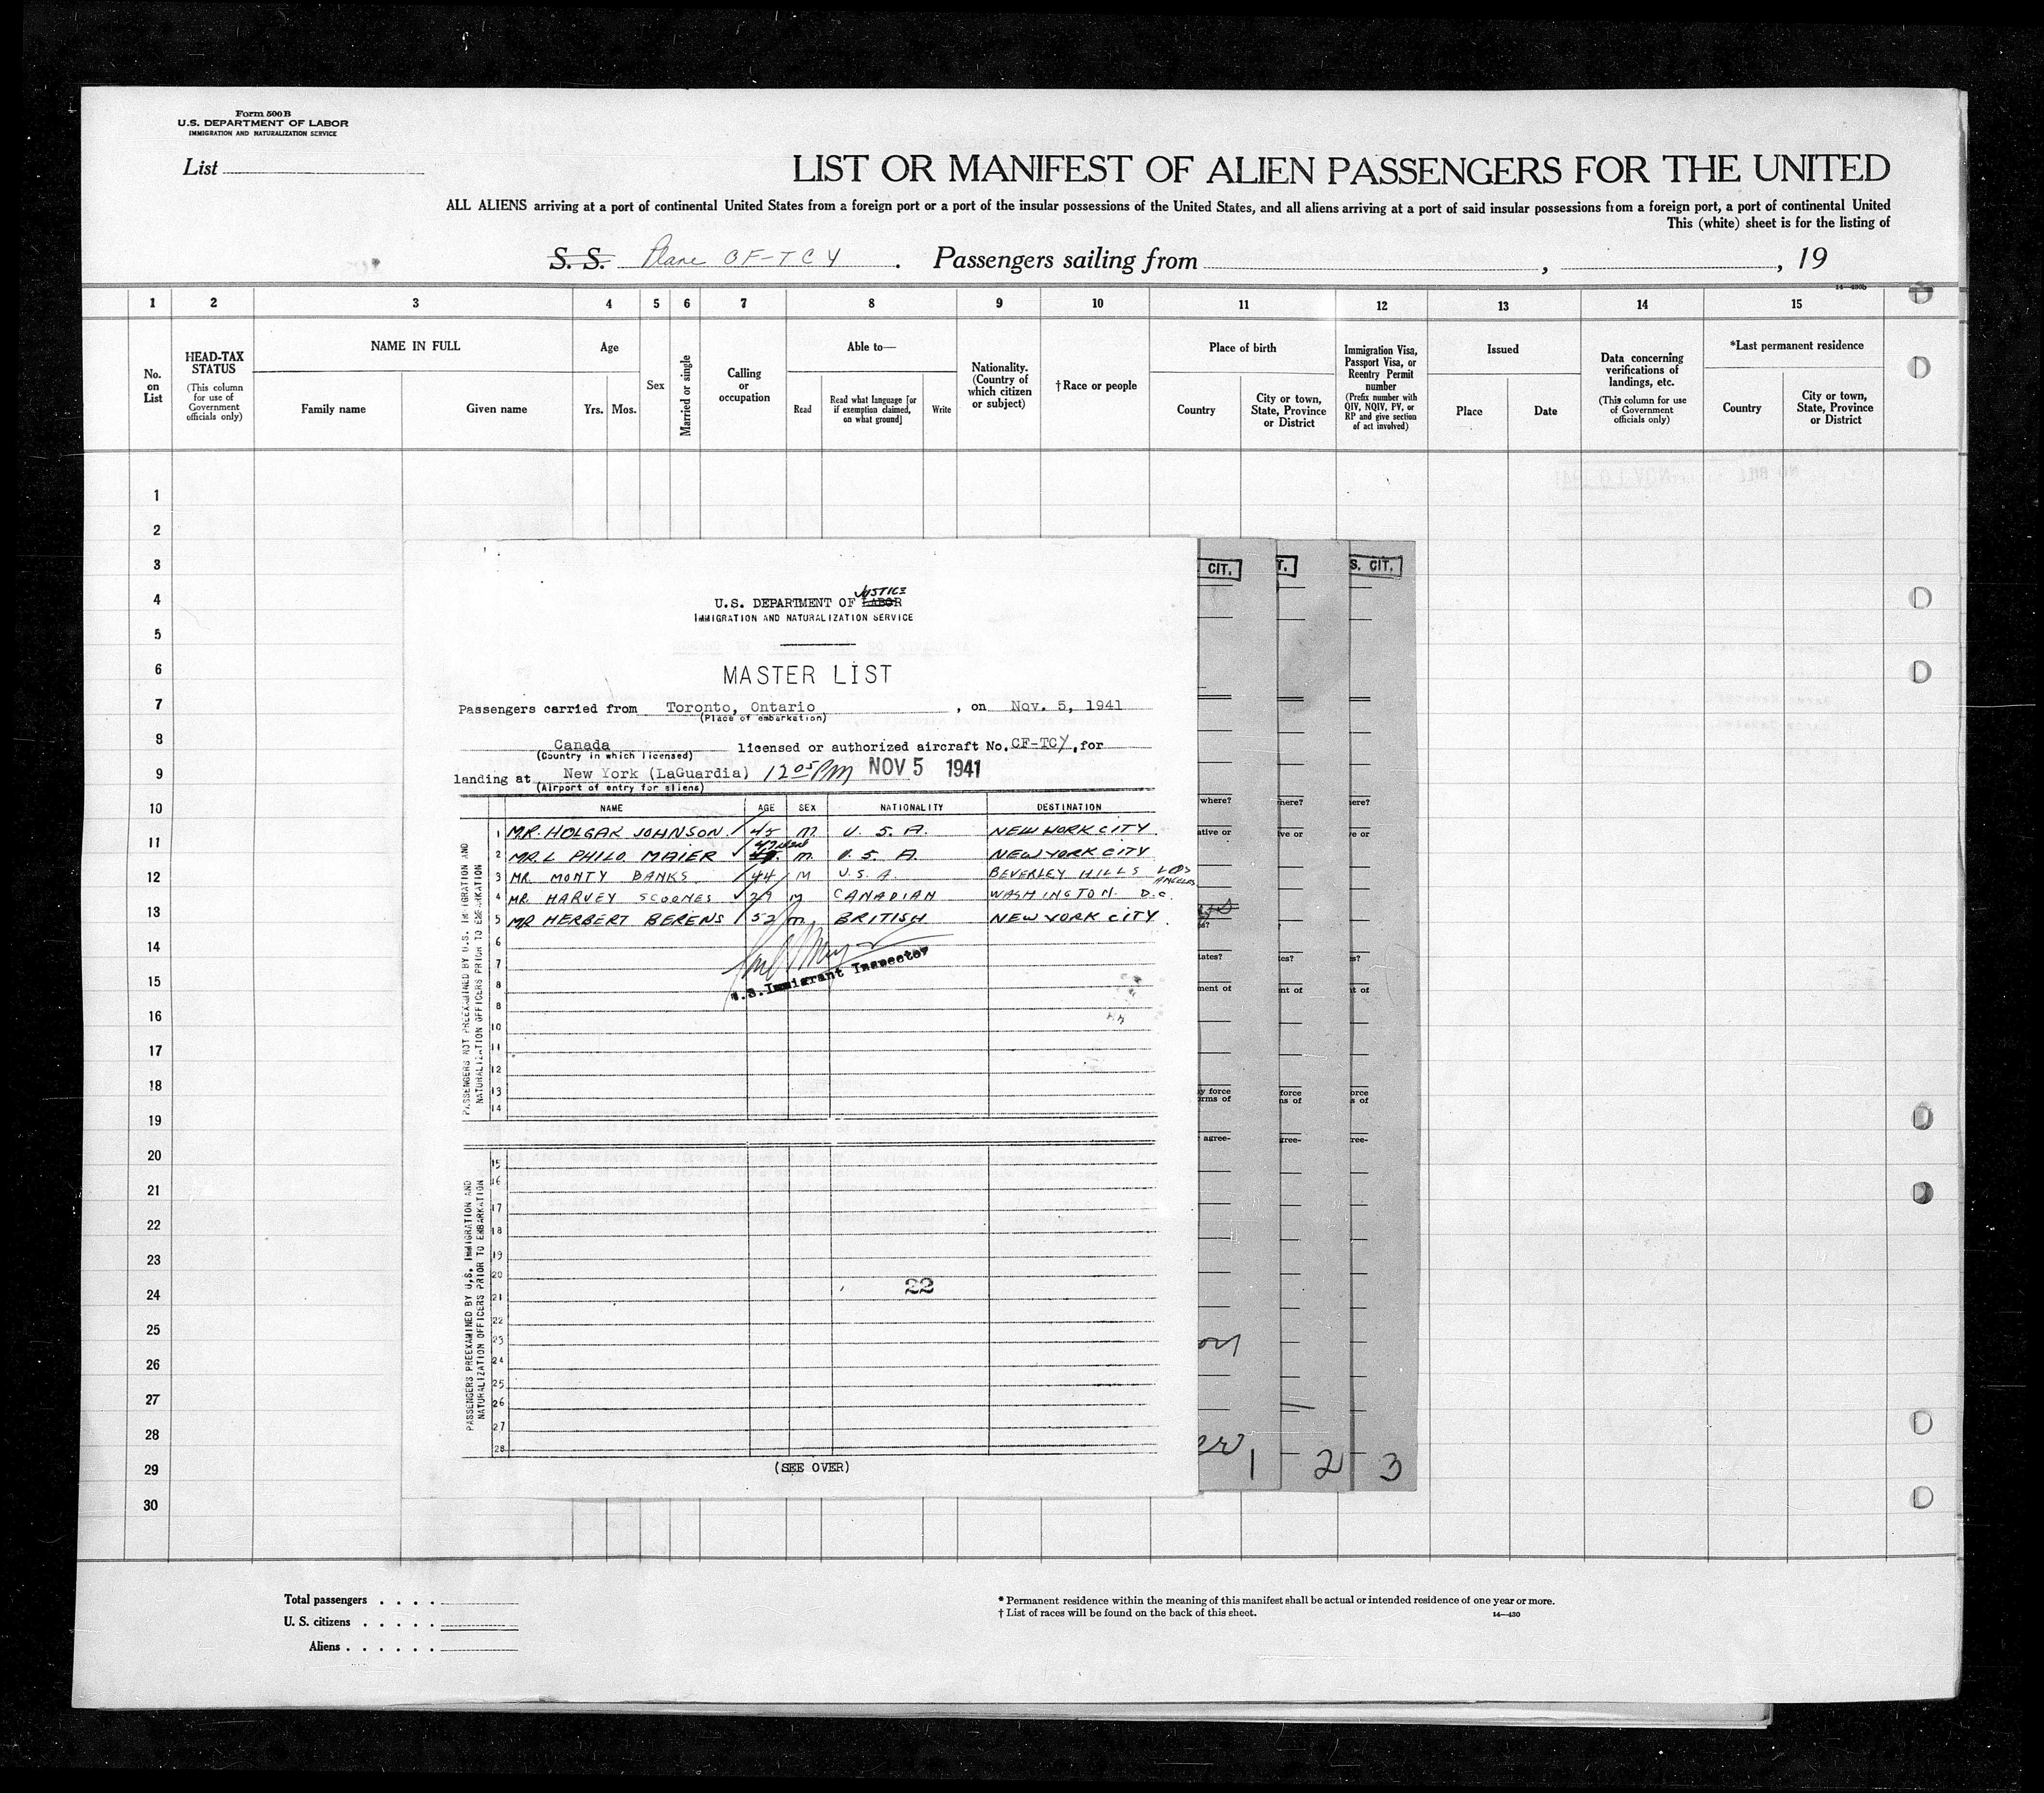 Form 500 B
U.S. DEPARTMENT OF LABOR
IMMIGRATION AND NATURALIZATION SERVICE
List
LIST OR MANIFEST OF ALIEN PASSENGERS FOR THE UNITED
ALL ALIENS arriving at a port of continental United States from a foreign port or a port of the insular possessions of the United States, and all aliens arriving at a port of said insular possessions from a foreign port, a port of continental United
This (white) sheet is for the listing of
S. S. Plane CF-TCY . Passengers sailing from , , 19
14—430b
1 2 3 4 5 6 7 8 9 10 11 12 13 14 15
No. on List
HEAD-TAX STATUS (This column for use of Government officials only)
NAME IN FULL
Family name Given name
Age
Yrs. Mos.
Sex
Married or single
Calling or occupation
Able to—
Read Read what language [or if exemption claimed, on what ground] Write
Nationality. (Country of which citizen or subject)
†Race or people
Place of birth
Country City or town, State, Province or District
Immigration Visa, Passport Visa, or Reentry Permit number (Prefix number with QIV, NQIV, PV, or RP and give section of act involved)
Issued
Place Date
Data concerning verifications of landings, etc. (This column for use of Government officials only)
*Last permanent residence
Country City or town, State, Province or District
1
2
3
4
5
6
7
8
9
10
11
12
13
14
15
16
17
18
19
20
21
22
23
24
25
26
27
28
29
30
JUSTICE
U.S. DEPARTMENT OF LABOR
IMMIGRATION AND NATURALIZATION SERVICE
MASTER LIST
Passengers carried from Toronto, Ontario , on Nov. 5, 1941
(Place of embarkation)
Canada licensed or authorized aircraft No. CF-TCY, for
(Country in which licensed)
landing at New York (LaGuardia) 12 05 PM NOV 5 1941
(Airport of entry for aliens)
NAME AGE SEX NATIONALITY DESTINATION
1 MR. HOLGAR JOHNSON 45 M U. S. A. NEW WORK CITY
2 MR. L PHILO MAIER 47 M U. S. A. NEW YORK CITY
3 MR. MONTY BANKS 44 M U. S. A. BEVERLEY HILLS LOS ANGELES
4 MR. HARVEY SCOONES 29 M CANADIAN WASHINGTON. D.C.
5 MR HERBERT BERENS 52 M BRITISH NEW YORK CITY
6
7
8
8
10
11
12
13
14
U.S. Immigrant Inspector
PASSENGERS NOT PREEXAMINED BY U.S. IMMIGRATION AND NATURALIZATION OFFICERS PRIOR TO EMBARKATION
15
16
17
18
19
20
21
22
23
24
25
26
27
28
22
PASSENGERS PREEXAMINED BY U.S. IMMIGRATION AND NATURALIZATION OFFICERS PRIOR TO EMBARKATION
(SEE OVER)
CIT. T. S. CIT.
where? here? ere?
ative or ve or e or
tates? es? s?
ment of nt of t of
y force force orce
rms of ns of s of
agree- gree- ree-
1 2 3
Total passengers . . . .
U. S. citizens . . . . .
Aliens . . . . . .
* Permanent residence within the meaning of this manifest shall be actual or intended residence of one year or more.
† List of races will be found on the back of this sheet. 14—430